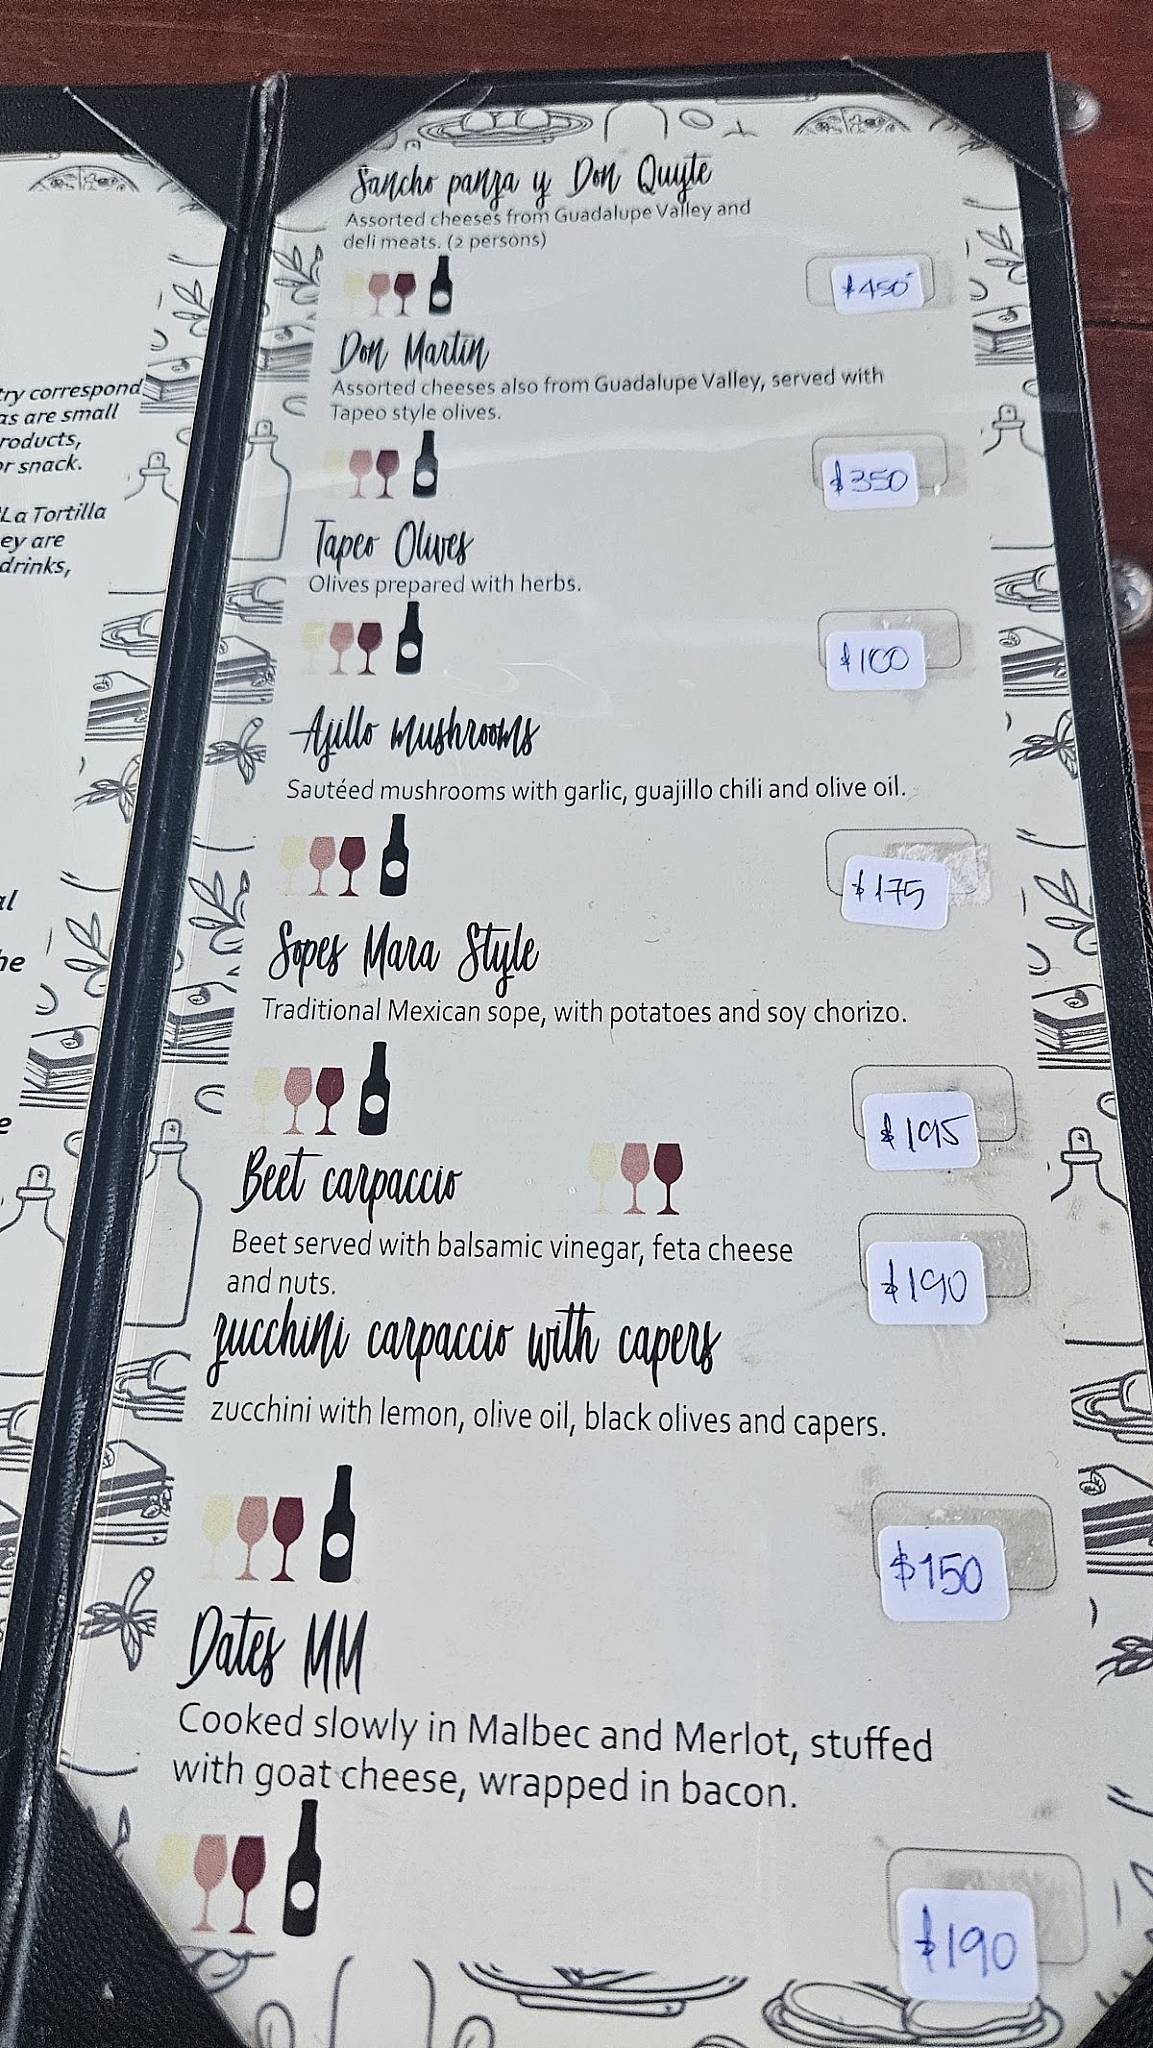 try correspond
as are small
roducts,
or snack.
La Tortilla
ey are
drinks,
al
he
e
Sancho panza y Don Quijote
Assorted cheeses from Guadalupe Valley and
deli meats. (2 persons)
$450
Don Martin
Assorted cheeses also from Guadalupe Valley, served with
Tapeo style olives.
$350
Tapeo Olives
Olives prepared with herbs.
$100
Ajillo mushrooms
Sautéed mushrooms with garlic, guajillo chili and olive oil.
$175
Sopes Mara Style
Traditional Mexican sope, with potatoes and soy chorizo.
$195
Beet carpaccio
Beet served with balsamic vinegar, feta cheese
and nuts.
$190
zucchini carpaccio with capers
zucchini with lemon, olive oil, black olives and capers.
$150
Dates MM
Cooked slowly in Malbec and Merlot, stuffed
with goat cheese, wrapped in bacon.
$190